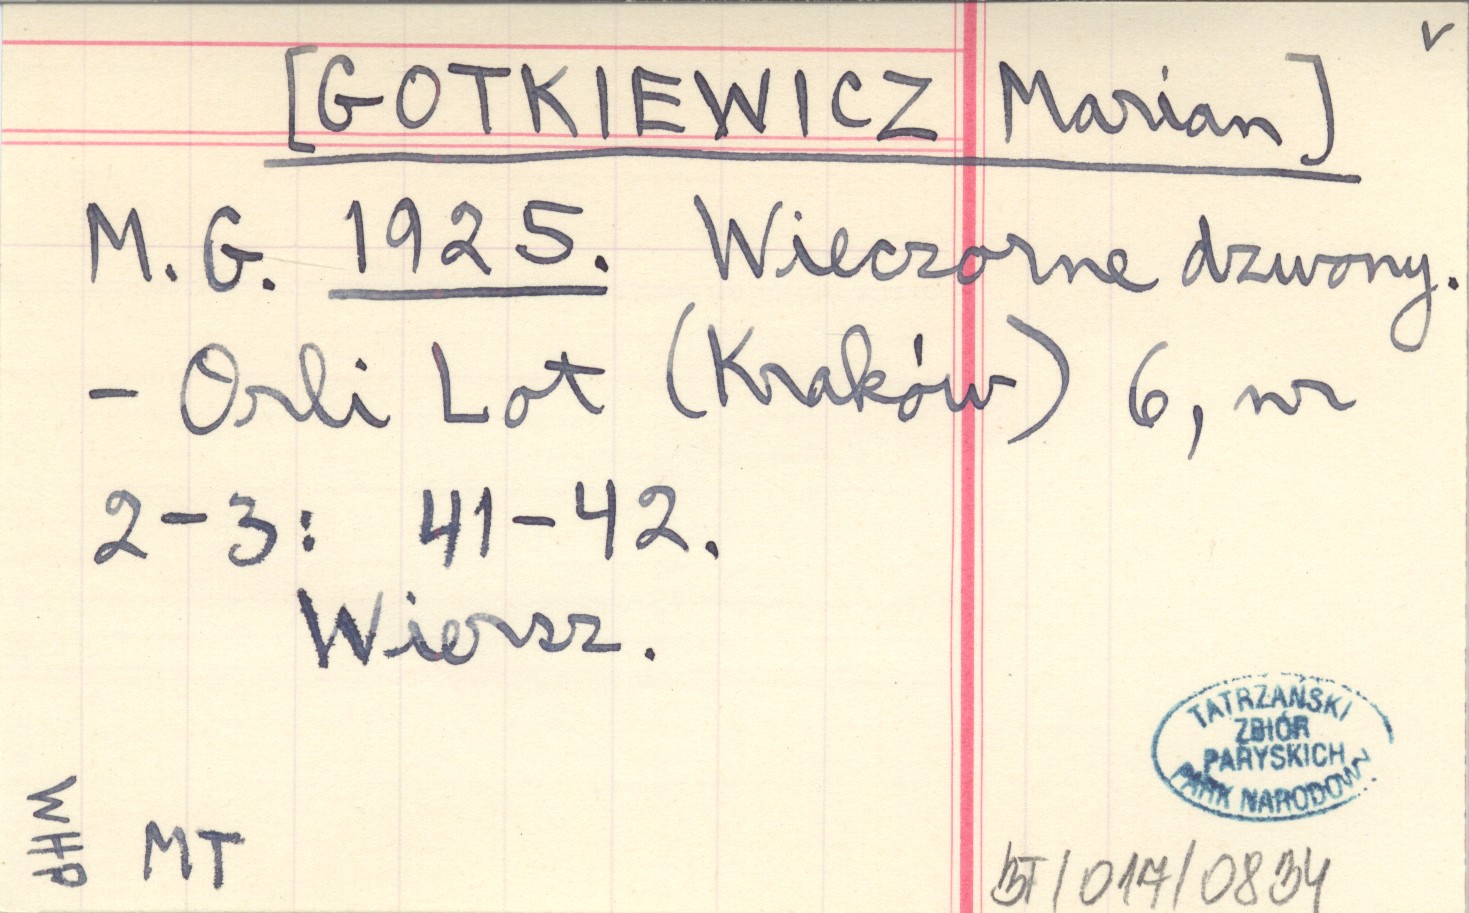 v
[GOTKIEWICZ Marian]
M. G. 1925. Wieczorne dzwony.
- Orli Lot (Kraków) 6, nr
2-3: 41-42.
Wiersz.
TATRZAŃSKI
ZBIÓR
PARYSKICH
PARK NARODOWY
WHP
MT
BT/017/0834